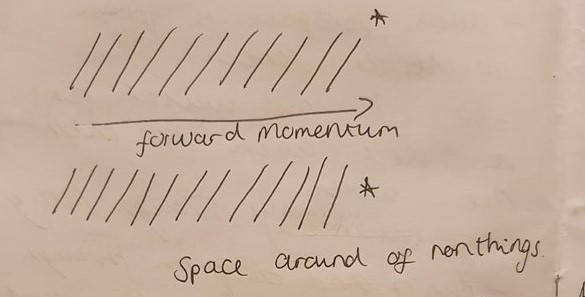 *
forward momentum
*
Space around of nonthings.